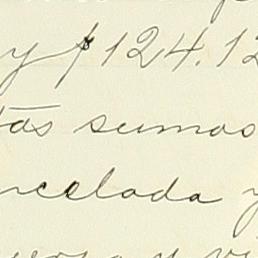 y $124.12
tas sumas
ncelada y
y vi